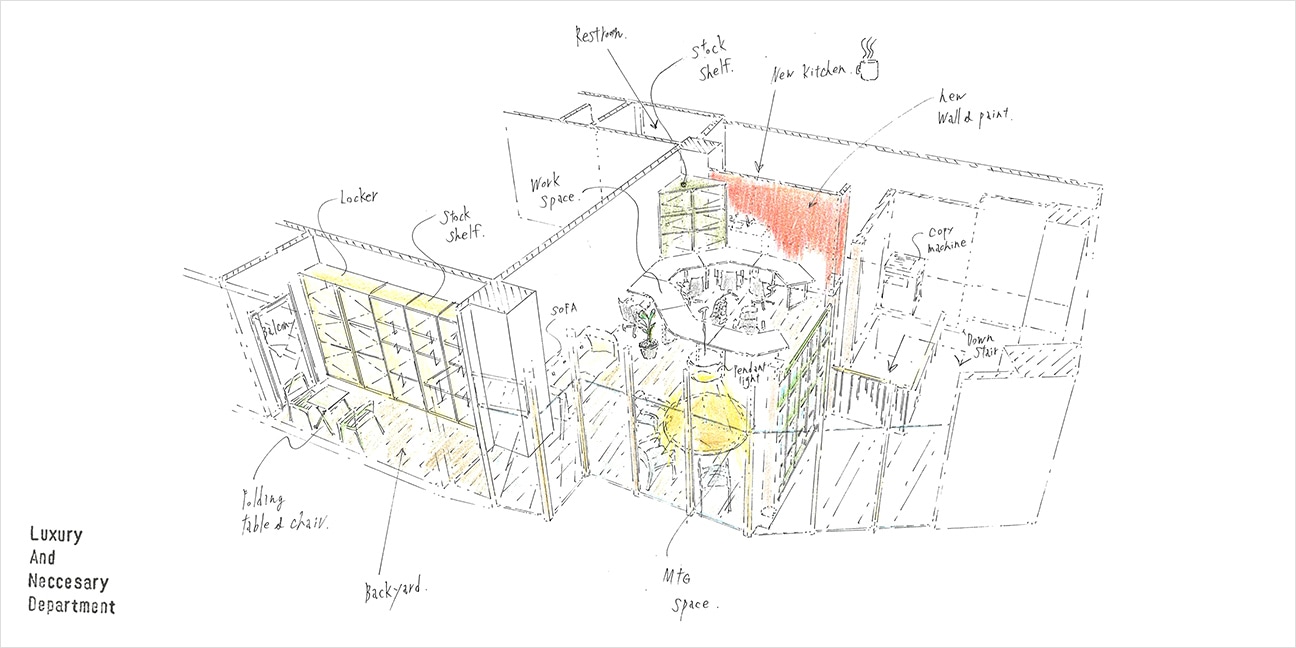 Restroom.
Stock
Shelf.
New Kitchen.
new
Wall & paint.
Work
Space.
Locker
Stock
Shelf.
Copy
machine
SOFA
Balcony
Down
Stair
Pendant
light
Folding
table & chair.
Backyard.
MtG
Space.
Luxury
And
Neccesary
Department